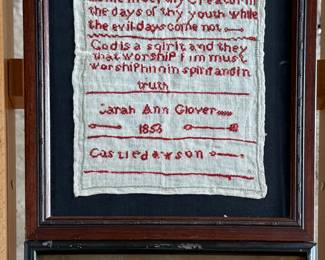 the days of thy youth while
the evil days come not
God is a spirit and they
that worship him must
worship him in spirit and in
truth
Sarah Ann Glover
1853
Castledawson